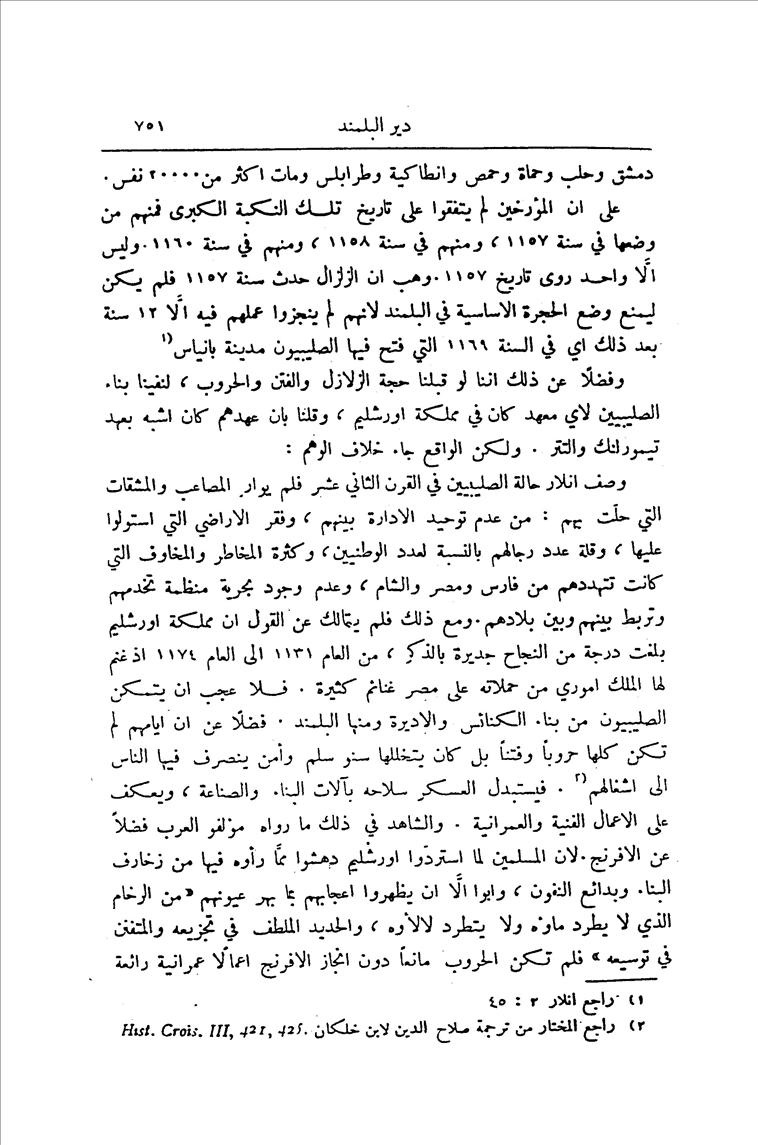 دير البلمند ٧٥١
دمشق وحلب وحماة وحمص وانطاكية وطرابلس ومات اكثر من ٢٠٠٠٠ نفس.
على ان المؤرخين لم يتفقوا على تاريخ تلك النكبة الكبرى فمنهم من
وضعها في سنة ١١٥٧ ، ومنهم في سنة ١١٥٨ ، ومنهم في سنة ١١٦٠. وليس
الّا واحد روى تاريخ ١١٥٧. وهب ان الزلزال حدث سنة ١١٥٧ فلم يكن
ليمنع وضع الحجرة الاساسية في البلمند لانهم لم ينجزوا عملهم فيه الّا ١٢ سنة
بعد ذلك اي في السنة ١١٦٩ التي فتح فيها الصليبيون مدينة بانياس ١)
وفضلًا عن ذلك اننا لو قبلنا حجة الزلازل والفتن والحروب ، لنفينا بناء
الصليبيين لاي معهد كان في مملكة اورشليم ، وقلنا بان عهدهم كان اشبه بعهد
تيمورلنك والتتر . ولكن الواقع جاء خلاف الوهم :
وصف انلار حالة الصليبيين في القرن الثاني عشر فلم يوار المصاعب والمشقات
التي حلّت بهم : من عدم توحيد الادارة بينهم ، وفقر الاراضي التي استولوا
عليها ، وقلة عدد رجالهم بالنسبة لعدد الوطنيين ، وكثرة المخاطر والمخاوف التي
كانت تتهددهم من فارس ومصر والشام ، وعدم وجود بحرية منظمة تخدمهم
وتربط بينهم وبين بلادهم. ومع ذلك فلم يتمالك عن القول ان مملكة اورشليم
بلغت درجة من النجاح جديرة بالذكر ، من العام ١١٣١ الى العام ١١٧٤ اذ غنم
لها الملك اموري من حملاته على مصر غنائم كثيرة . فلا عجب ان يتمكن
الصليبيون من بناء الكنائس والاديرة ومنها البلمند . فضلًا عن ان ايامهم لم
تكن كلها حروباً وفتناً بل كان يتخللها سنو سلم وأمن ينصرف فيها الناس
الى اشغالهم ٢) . فيستبدل العسكر سلاحه بآلات البناء والصناعة ، ويعكف
على الاعمال الفنية والعمرانية . والشاهد في ذلك ما رواه مؤلفو العرب فضلاً
عن الافرنج. لان المسلمين لما استردّوا اورشليم دهشوا ممَّا رأوه فيها من زخارف
البناء وبدائع الفنون ، وابوا الّا ان يظهروا اعجابهم بما بهر عيونهم «من الرخام
الذي لا يطرد ماؤه ولا يتطرد لالاوه ، والحديد الملطف في تجزيعه والمتفنن
في توسيعه» فلم تكن الحروب مانعاً دون انجاز الافرنج اعمالًا عمرانية رائعة
١) راجع انلار ٢ : ٤٥
٢) راجع المختار من ترجمة صلاح الدين لابن خلكان Hist. Crois. III, 421, 425.